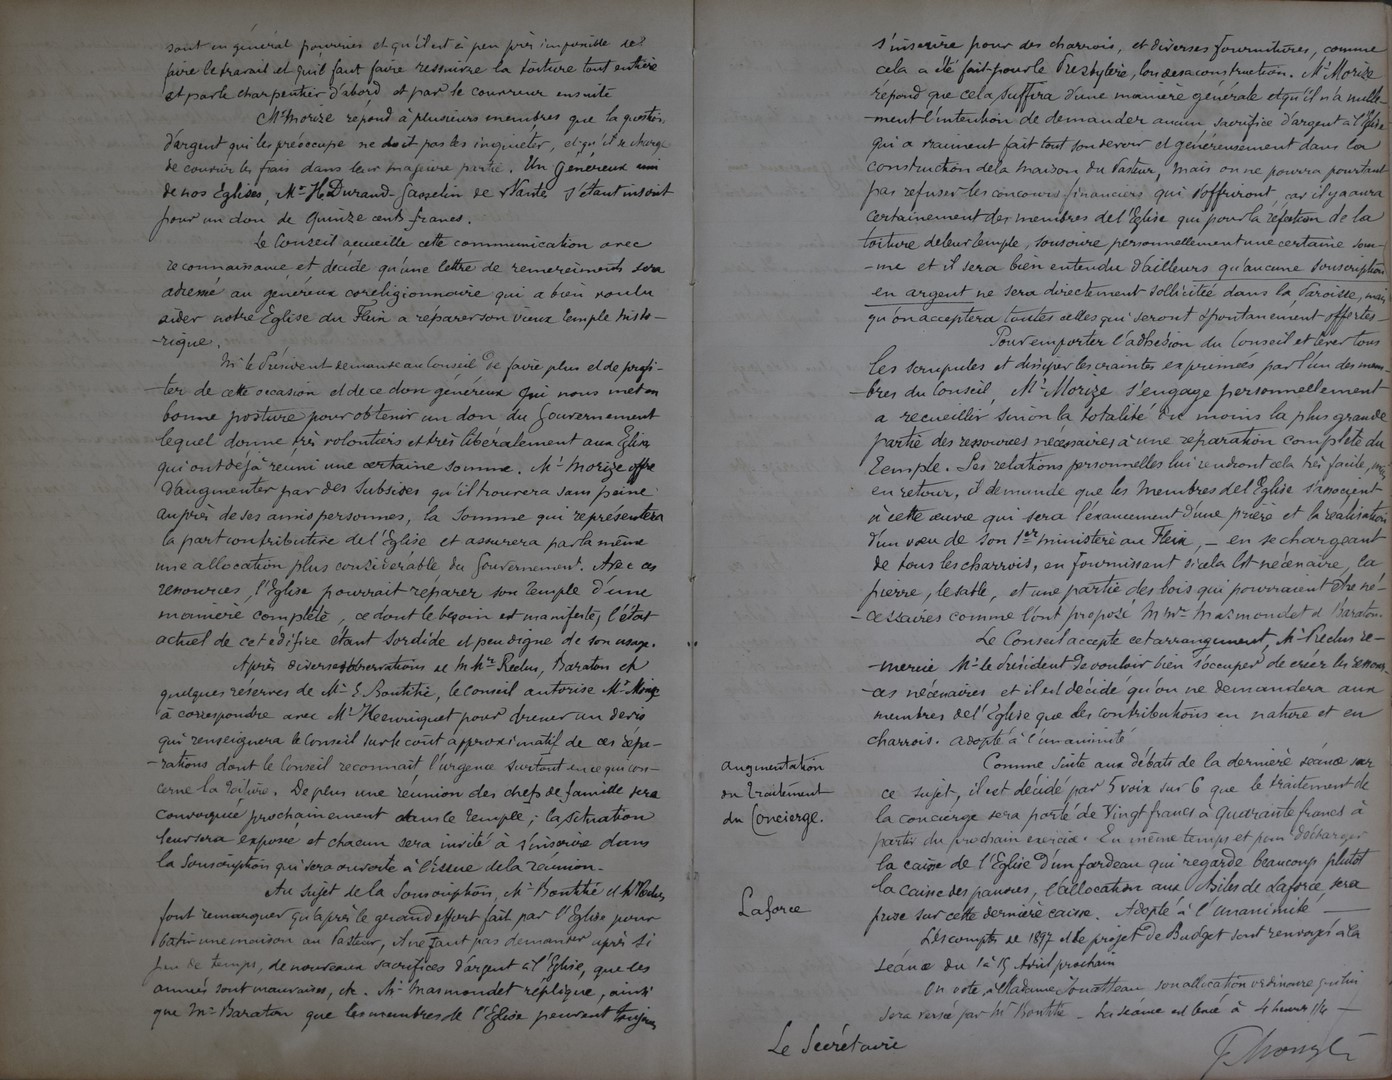 sont en général pourries et qu'il est à peu près impossible de
faire le travail et qu'il faut faire ressuivre la toiture tout entière
et par le charpentier d'abord et par le couvreur ensuite
Mr Morize répond à plusieurs membres que la question
d'argent qui les préoccupe ne doit pas les inquiéter, et qu'il se charge
de couvrir les frais dans leur majeure partie. Un généreux ami
de nos Eglises, Mr H. Durand-Gasselin de Nantes s'étant inscrit
pour un don de quinze cents francs.
Le Conseil accueille cette communication avec
reconnaissance et décide qu'une lettre de remerciements sera
adressé au généreux coreligionnaire qui a bien voulu
aider notre Eglise du Fleix a reparer son vieux temple histo-
-rique.
Mr le Président demande au Conseil de faire plus et de profi-
-ter de cette occasion et de ce don généreux qui nous met en
bonne posture pour obtenir un don du Gouvernement
lequel donne très volontiers et très libéralement aux Eglises
qui ont déjà réuni une certaine somme. Mr Morize offre
d'augmenter par des subsides qu'il trouvera sans peine
auprès de ses amis personnes, la somme qui représentera
la part contributive de l'Eglise et assurera par là même
une allocation plus considérable du Gouvernement. Avec ces
ressources, l'Eglise pourrait réparer son temple d'une
manière complète, ce dont le besoin est manifeste, l'état
actuel de cet édifice étant sordide et peu digne de son usage.
Après diverses observations de MMrs Reclus, Baraton et
quelques réserves de Mr E Bontihé, le conseil autorise Mr Morize
à correspondre avec Mr Henriquet pour dresser un devis
qui renseignera le Conseil sur le coût approximatif de ces répa-
-rations dont le Conseil reconnaît l'urgence surtout en ce qui con-
cerne la toiture. De plus une réunion des chefs de famille sera
convoquée prochainement dans le temple; la situation
leur sera exposée et chacun sera invité à s'inscrire dans
la souscription qui sera ouverte à l'issue de la réunion.
Au sujet de la souscription, Mr Bontihé et Mr Reclus
font remarquer qu'après le grand effort fait par l'Eglise pour
bâtir une maison au Pasteur, il ne faut pas demander après si
peu de temps, de nouveaux sacrifices d'argent à l'Eglise, que les
années sont mauvaises, etc. Mr Masmondet réplique, ainsi
que Mr Baraton que les membres de l'Eglise peuvent toujours
s'inscrire pour des charrois, et diverses fournitures, comme
cela a été fait pour le Presbytère, lors de sa construction. Mr Morize
répond que cela suffira d'une manière générale et qu'il n'a nulle-
-ment l'intention de demander aucun sacrifice d'argent à l'Eglise
qui a vraiment fait tout son devoir et généreusement dans la
construction de la maison du Pasteur, mais on ne pourra pourtant
pas refuser les concours financiers qui s'offriront, car il y aura
certainement des membres de l'Eglise qui pour la réfection de la
toiture de leur temple, souscrire personnellement une certaine som-
-me et il sera bien entendu d'ailleurs qu'aucune souscription
en argent ne sera directement sollicitée dans la Paroisse, mais
qu'on acceptera toutes celles qui seront spontanément offertes -
Pour emporter l'adhésion du Conseil et lever tous
les scrupules et dissiper les craintes exprimées par l'un des mem-
-bres du Conseil, Mr Morize s'engage personnellement
a recueillir sinon la totalité du moins la plus grande
partie des ressources nécessaires à une réparation complète du
temple. Ses relations personnelles lui rendront cela très facile, mais
en retour, il demande que les membres de l'Eglise s'associent
à cette œuvre qui sera l'exaucement d'une prière et la réalisation
d'un vœu de son 1er ministère au Fleix, - en se chargeant
de tous les charrois, en fournissant si cela est nécessaire, la
pierre, le sable, et une partie des bois qui pourraient être né-
-cessaires comme l'ont proposé MMrs Masmondet et Baraton.
Le Conseil accepte cet arrangement, Mr Reclus re-
-mercie Mr le Président de vouloir bien s'occuper de créer les ressour-
-ces nécessaires et il est décidé qu'on ne demandera aux
membres de l'Eglise que des contributions en nature et en
charrois. Adopté à l'unanimité
augmentation
du traitement
du Concierge.
Comme suite aux débats de la dernière séance sur
ce sujet, il est décidé par 5 voix sur 6 que le traitement de
la concierge sera porté de vingt francs à quarante francs à
partir du prochain exercice. En même temps et pour décharger
la caisse de l'Eglise d'un fardeau qui regarde beaucoup plutôt
la caisse des pauvres, l'allocation aux Asiles de Laforce sera
Laforce
prise sur cette dernière caisse. Adopté à l'unanimité -
Les comptes de 1897 et le projet de Budget sont renvoyés à la
séance du 1 à 15 Avril prochain
On vote à Madame son allocation ordinaire qui lui
sera versée par Mr Bontihé - La séance est levée à 4 heures 1/4 -
Le Secrétaire